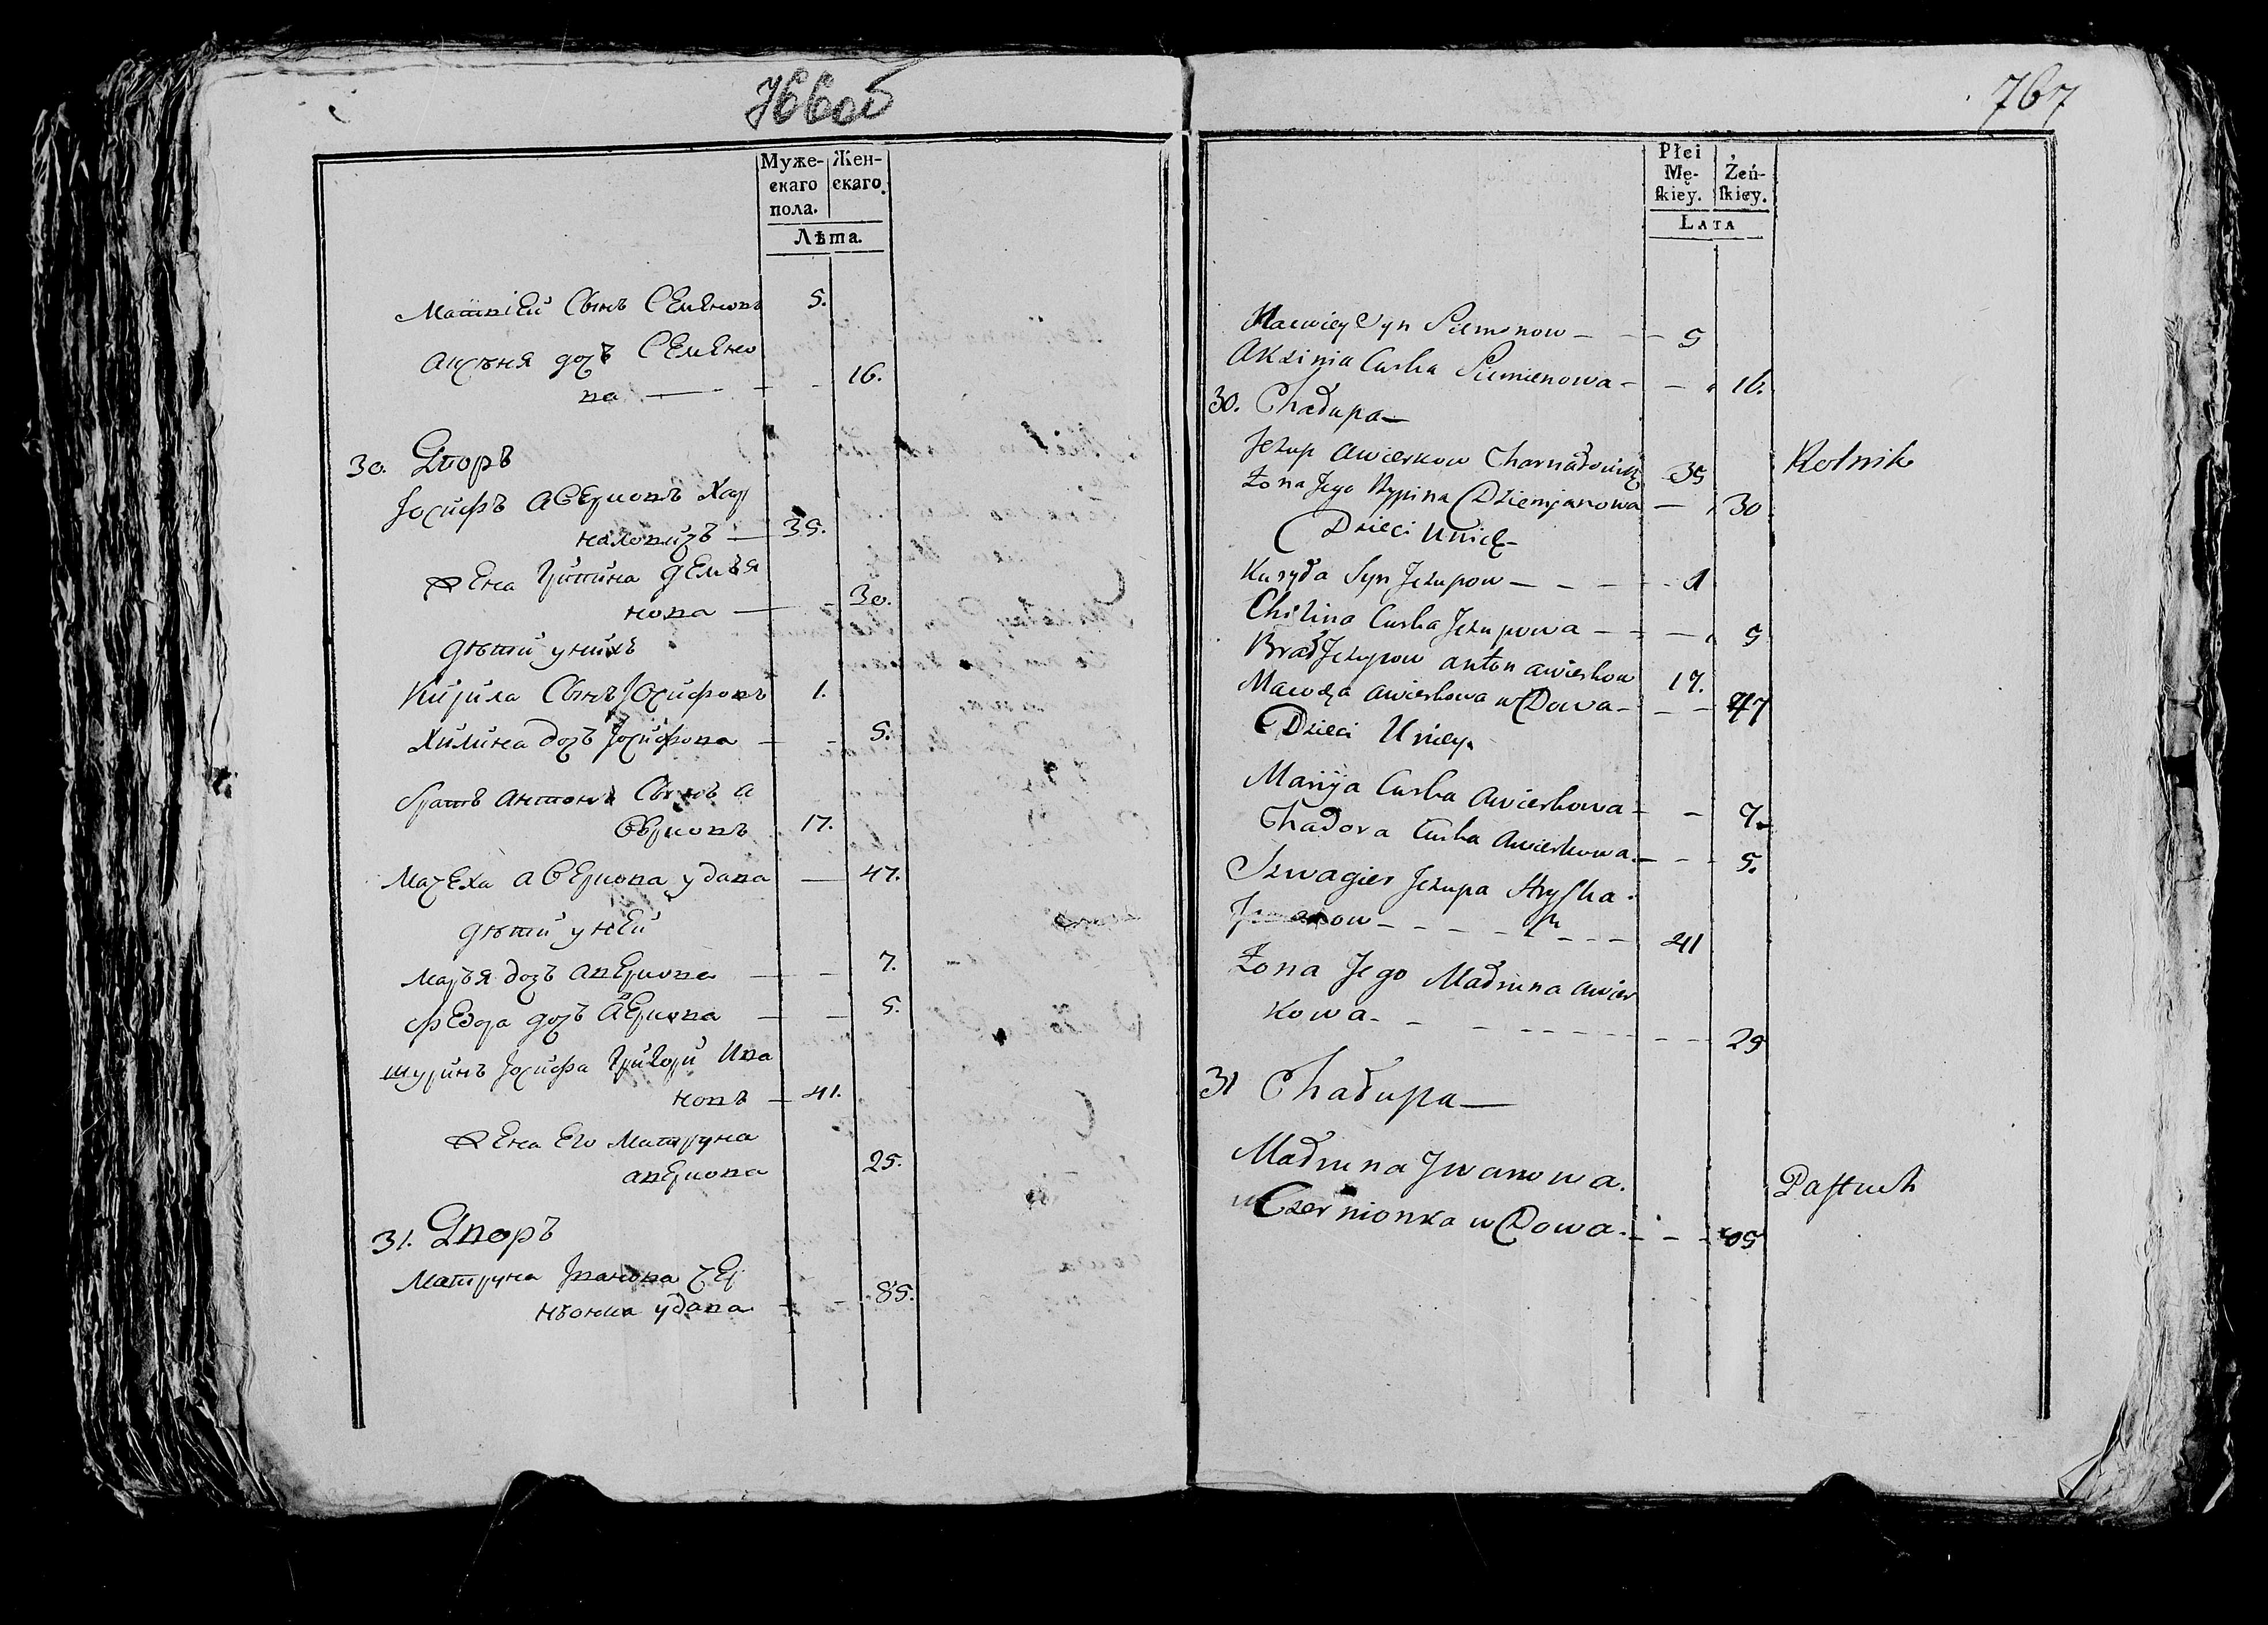 766об
Муже-
скаго
пола.
Жен-
скаго.
Лѣта.
Матвѣй Сынъ Семеновъ 5.
Аксѣня дочъ Семено
ва — 16.
30. Дворъ
Іосифъ Аверковъ Хар
наловичъ — 35.
Жена Грипина Демья
нова — 30.
дѣти у нихъ
Кирила Сынъ Іосифовъ 1.
Хилина дочъ Іосифова — 5.
братъ Антонъ Сынъ А
верковъ 17.
Мачеха Аверкова удава — 47.
дѣти у ней
Марья дочъ Аверкова — 7.
Федора дочъ Аверкова — 5.
шуринъ Іосифа Григорій Ива
новъ — 41.
Жена Его Матруна
Аверкова 25.
31. Дворъ
Матруна Іванова Чер
нѣонка удава — 85.
767
Płci
Mę-
ſkiey.
Żeń-
ſkiey.
LATA
Maciey Syn Siemonow — 5
Aksinia Curka Siemienowa — 16.
30. Chałupa —
Jezup Awierkow Charnałowicz 35 Rolnik
Żona Jego Rypina Dziemjanowa — 30
Dzieci Unich
Kuryła Syn Jezupow — 1
Chilina Curka Jezupowa — 5
Brat Jezupow Anton Awierkow 17.
Macocha Awierkowa wdowa — 47
Dzieci Uniey.
Maryja Curka Awierkowa — 7.
Chadora Curka Awierkowa — 5.
Szwagier Jezupa Hryſka
Jwanow — 41
Żona Jego Matruna Awier
kowa — 25
31 Chałupa —
Matruna Jwanowa. Paſtuch
Czernionka wdowa. — 85